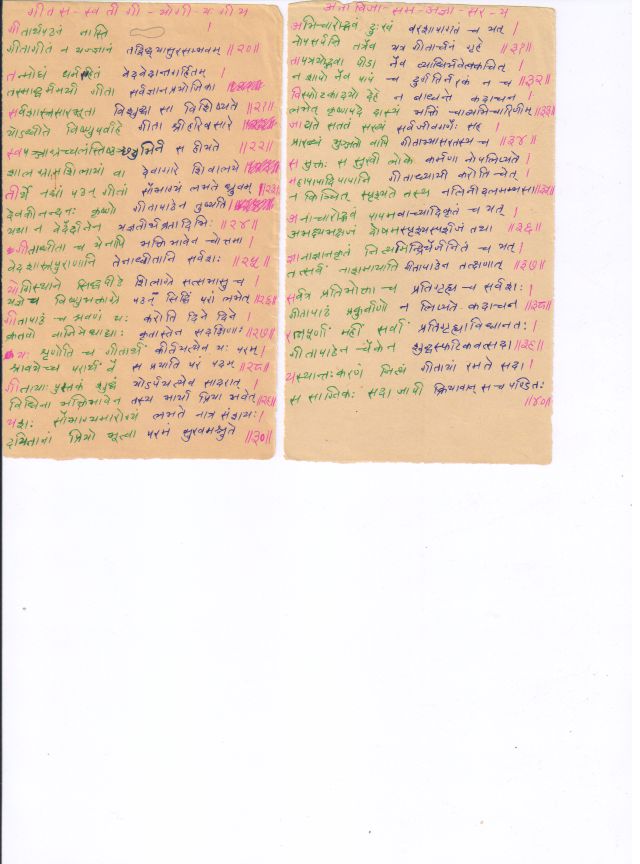 गी त स - स्व ती गी - यो गी - य गी य
गीतार्थपठनं नास्ति ।
गीतागीतं न यज्ज्ञानं तद्विद्ध्यासुरसम्भवम् ॥२०॥
तन्मोघं धर्मरहितं वेदवेदान्तगर्हितम् ।
तस्माद्धर्ममयी गीता सर्वज्ञानप्रयोजिका
सर्वशास्त्रसारभूता विशुद्धा सा विशिष्यते ॥२१॥
योऽधीते विष्णुपर्वाहे गीतां श्रीहरिवासरे
स्वपन्जाग्रच्चलंस्तिष्ठन् शत्रुभिर्न स हीयते ॥२२॥
शालग्रामशिलायां वा देवागारे शिवालये
तीर्थे नद्यां पठन् गीतां सौभाग्यं लभते ध्रुवम् ॥२३॥
देवकीनन्दनः कृष्णो गीतापाठेन तुष्यति
यथा न वेदैर्दानेन यज्ञतीर्थव्रतादिभिः ॥२४॥
गीताधीता च येनापि भक्तिभावेन चोत्तमा ।
वेदशास्त्रपुराणानि तेनाधीतानि सर्वशः ॥२५॥
योगिस्थाने सिद्धपीठे शिलाग्रे सत्सभासु च ।
यज्ञे च विष्णुभक्ताग्रे पठन् सिद्धिं परां लभेत् ॥२६॥
गीतापाठं च श्रवणं यः करोति दिने दिने ।
क्रतवो वाजिमेधाद्याः कृतास्तेन सदक्षिणाः ॥२७॥
यः शृणोति च गीतार्थं कीर्तयत्येव यः परम् ।
श्रावयेच्च परार्थं वै स प्रयाति परं पदम् ॥२८॥
गीतायाः पुस्तकं शुद्धं योऽर्पयत्येव सादरात् ।
विधिना भक्तिभावेन तस्य भार्या प्रिया भवेत् ॥२९॥
यशः सौभाग्यमारोग्यं लभते नात्र संशयः ।
दयितानां प्रियो भूत्वा परमं सुखमश्नुते ॥३०॥
अभिचारोद्भवं दुःखं वरशापागतं च यत् ।
नोपसर्पति तत्रैव यत्र गीतार्चनं गृहे ॥३१॥
तापत्रयोद्भवा पीडा नैव व्याधिर्भवेत्क्वचित् ।
न शापो नैव पापं च दुर्गतिर्नरकं न च ॥३२॥
विस्फोटकादयो देहे न बाधन्ते कदाचन ।
लभेत् कृष्णपदे दास्यं भक्तिं चाव्यभिचारिणीम् ॥३३॥
जायते सततं सख्यं सर्वजीवगणैः सह ।
प्रारब्धं भुञ्जतो वापि गीताभ्यासरतस्य च ॥३४॥
स मुक्तः स सुखी लोके कर्मणा नोपलिप्यते ।
महापापादिपापानि गीताध्यायी करोति चेत् ।
न किञ्चित् स्पृश्यते तस्य नलिनीदलमम्भसा ॥३५॥
अनाचारोद्भवं पापमवाच्यादिकृतं च यत् ।
अभक्ष्यभक्षजं दोषमस्पृश्यस्पर्शजं तथा ॥३६॥
ज्ञानाज्ञानकृतं नित्यमिन्द्रियैर्जनितं च यत् ।
तत्सर्वं नाशमायाति गीतापाठेन तत्क्षणात् ॥३७॥
सर्वत्र प्रतिभोक्ता च प्रतिगृह्य च सर्वशः ।
गीतापाठं प्रकुर्वाणो न लिप्येत कदाचन ॥३८॥
रत्नपूर्णां महीं सर्वां प्रतिगृह्याविधानतः ।
गीतापाठेन चैकेन शुद्धस्फटिकवत्सदा ॥३९॥
यस्यान्तःकरणं नित्यं गीतायां रमते सदा ।
स साग्निकः सदा जापी क्रियावान् स च पण्डितः
॥४०॥